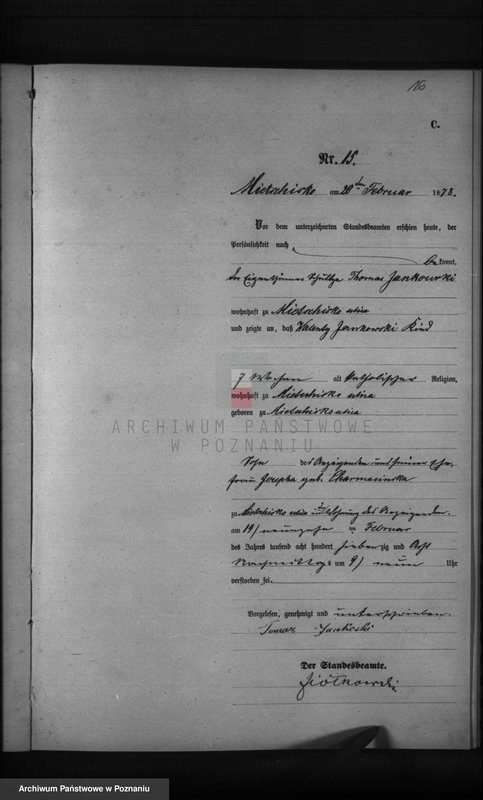 16
C.
Nr. 15.
Mietschisko am 20ten Februar 1878.
Vor dem unterzeichneten Standesbeamten erschien heute, der
Persönlichkeit nach
bekannt,
der Eigenthümer Thomas Jankowski
wohnhaft zu Mietschisko
und zeigte an, daß Walenty Jankowski Kind
7 Wochen alt katholischer Religion,
wohnhaft zu Mietschisko
geboren zu Mietschisko
ARCHIWUM PAŃSTWOWE
W POZNANIU
Sohn des Anzeigenden und seiner Ehe-
frau Josepha geb.
zu Mietschisko Wohnung des Anzeigenden
am 19/ neunzehn ten Februar
des Jahres tausend acht hundert siebenzig und Acht
Nachmittags um 9/ neun Uhr
verstorben sei.
Vorgelesen, genehmigt und unterschrieben.
Tomas Jankoski
Der Standesbeamte.
Archiwum Państwowe w Poznaniu